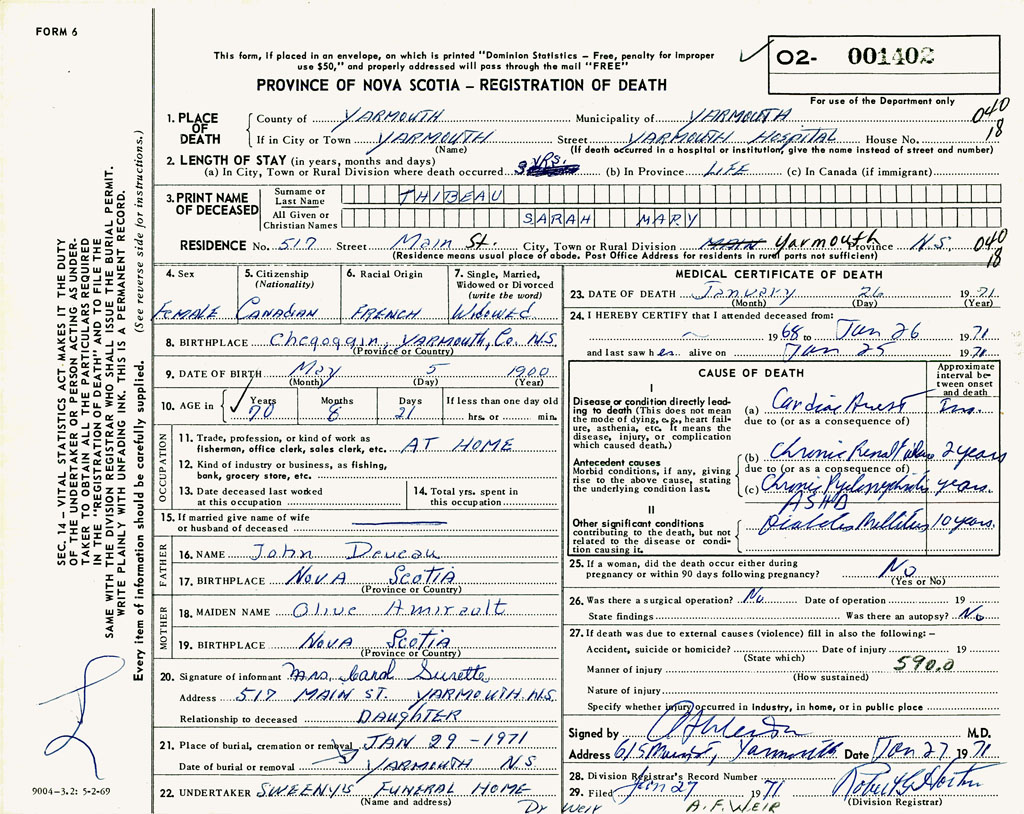 FORM 6
This form, if placed in an envelope, on which is printed "Dominion Statistics – Free, penalty for improper
use $50," and properly addressed will pass through the mail "FREE"
O2- 001402
For use of the Department only
PROVINCE OF NOVA SCOTIA – REGISTRATION OF DEATH
1. PLACE OF DEATH
County of YARMOUTH Municipality of YARMOUTH 040
If in City or Town YARMOUTH Street YARMOUTH HOSPITAL House No. 18
(Name) (If death occurred in a hospital or institution, give the name instead of street and number)
2. LENGTH OF STAY (in years, months and days)
(a) In City, Town or Rural Division where death occurred YRS. (b) In Province LIFE (c) In Canada (if immigrant)
3. PRINT NAME OF DECEASED
Surname or Last Name THIBEAU
All Given or Christian Names SARAH MARY
RESIDENCE No. 517 Street Main St. City, Town or Rural Division MAIN Yarmouth Province N.S. 040
(Residence means usual place of abode. Post Office Address for residents in rural parts not sufficient) 18
4. Sex
Female
5. Citizenship
(Nationality)
Canadian
6. Racial Origin
FRENCH
7. Single, Married,
Widowed or Divorced
(write the word)
Widowed
8. BIRTHPLACE Chegoggin, YARMOUTH, Co. N.S.
(Province or Country)
9. DATE OF BIRTH May 5 1900
(Month) (Day) (Year)
10. AGE in Years Months Days If less than one day old
70 8 21 hrs. or min.
OCCUPATION
11. Trade, profession, or kind of work as
fisherman, office clerk, sales clerk, etc. AT HOME
12. Kind of industry or business, as fishing,
bank, grocery store, etc.
13. Date deceased last worked
at this occupation
14. Total yrs. spent in
this occupation
15. If married give name of wife
or husband of deceased
FATHER
16. NAME John Deveau
17. BIRTHPLACE NOVA SCOTIA
(Province or Country)
MOTHER
18. MAIDEN NAME Olive Amirault
19. BIRTHPLACE NOVA SCOTIA
(Province or Country)
20. Signature of informant Mrs. Carol Surette
Address 517 MAIN ST. YARMOUTH N.S.
Relationship to deceased DAUGHTER
21. Place of burial, cremation or removal JAN 29 - 1971
Date of burial or removal YARMOUTH N.S.
22. UNDERTAKER SWEENY'S FUNERAL HOME
(Name and address)
MEDICAL CERTIFICATE OF DEATH
23. DATE OF DEATH January 26 1971
(Month) (Day)
24. I HEREBY CERTIFY that I attended deceased from:
1968 to Jan 26 1971
and last saw her alive on Jan 25 1971
CAUSE OF DEATH
Approximate
interval be-
tween onset
and death
I
Disease or condition directly lead-
ing to death (This does not mean
the mode of dying, e.g., heart fail-
ure, asthenia, etc. It means the
disease, injury, or complication
which caused death.)
(a) Cardiac Arrest
due to (or as a consequence of)
Antecedent causes
Morbid conditions, if any, giving
rise to the above cause, stating
the underlying condition last.
(b) Chronic Renal Failure 2 years
due to (or as a consequence of)
(c) Chronic Pyelonephritis years.
ASHD
II
Other significant conditions
contributing to the death, but not
related to the disease or condi-
tion causing it.
Diabetes Mellitus 10 years.
25. If a woman, did the death occur either during
pregnancy or within 90 days following pregnancy? No
(Yes or No)
26. Was there a surgical operation? No Date of operation 19
State findings Was there an autopsy? No
27. If death was due to external causes (violence) fill in also the following: –
Accident, suicide or homicide? Date of injury 19
(State which)
Manner of injury 590.0
(How sustained)
Nature of injury
Specify whether injury occurred in industry, in home, or in public place
Signed by M.D.
Address 615 Main St, Yarmouth Date Jan 27 1971
28. Division Registrar's Record Number
29. Filed Jan 27 1971 Robert G Horton
(Division Registrar)
Dr Weir A.F. WEIR
SEC. 14 – VITAL STATISTICS ACT MAKES IT THE DUTY
OF THE UNDERTAKER OR PERSON ACTING AS UNDER-
TAKER TO OBTAIN ALL THE PARTICULARS REQUIRED
IN THE "REGISTRATION OF DEATH" AND TO FILE THE
SAME WITH THE DIVISION REGISTRAR WHO SHALL ISSUE THE BURIAL PERMIT.
WRITE PLAINLY WITH UNFADING INK. THIS IS A PERMANENT RECORD.
Every item of information should be carefully supplied. (See reverse side for instructions.)
9004-3.2: 5-2-69